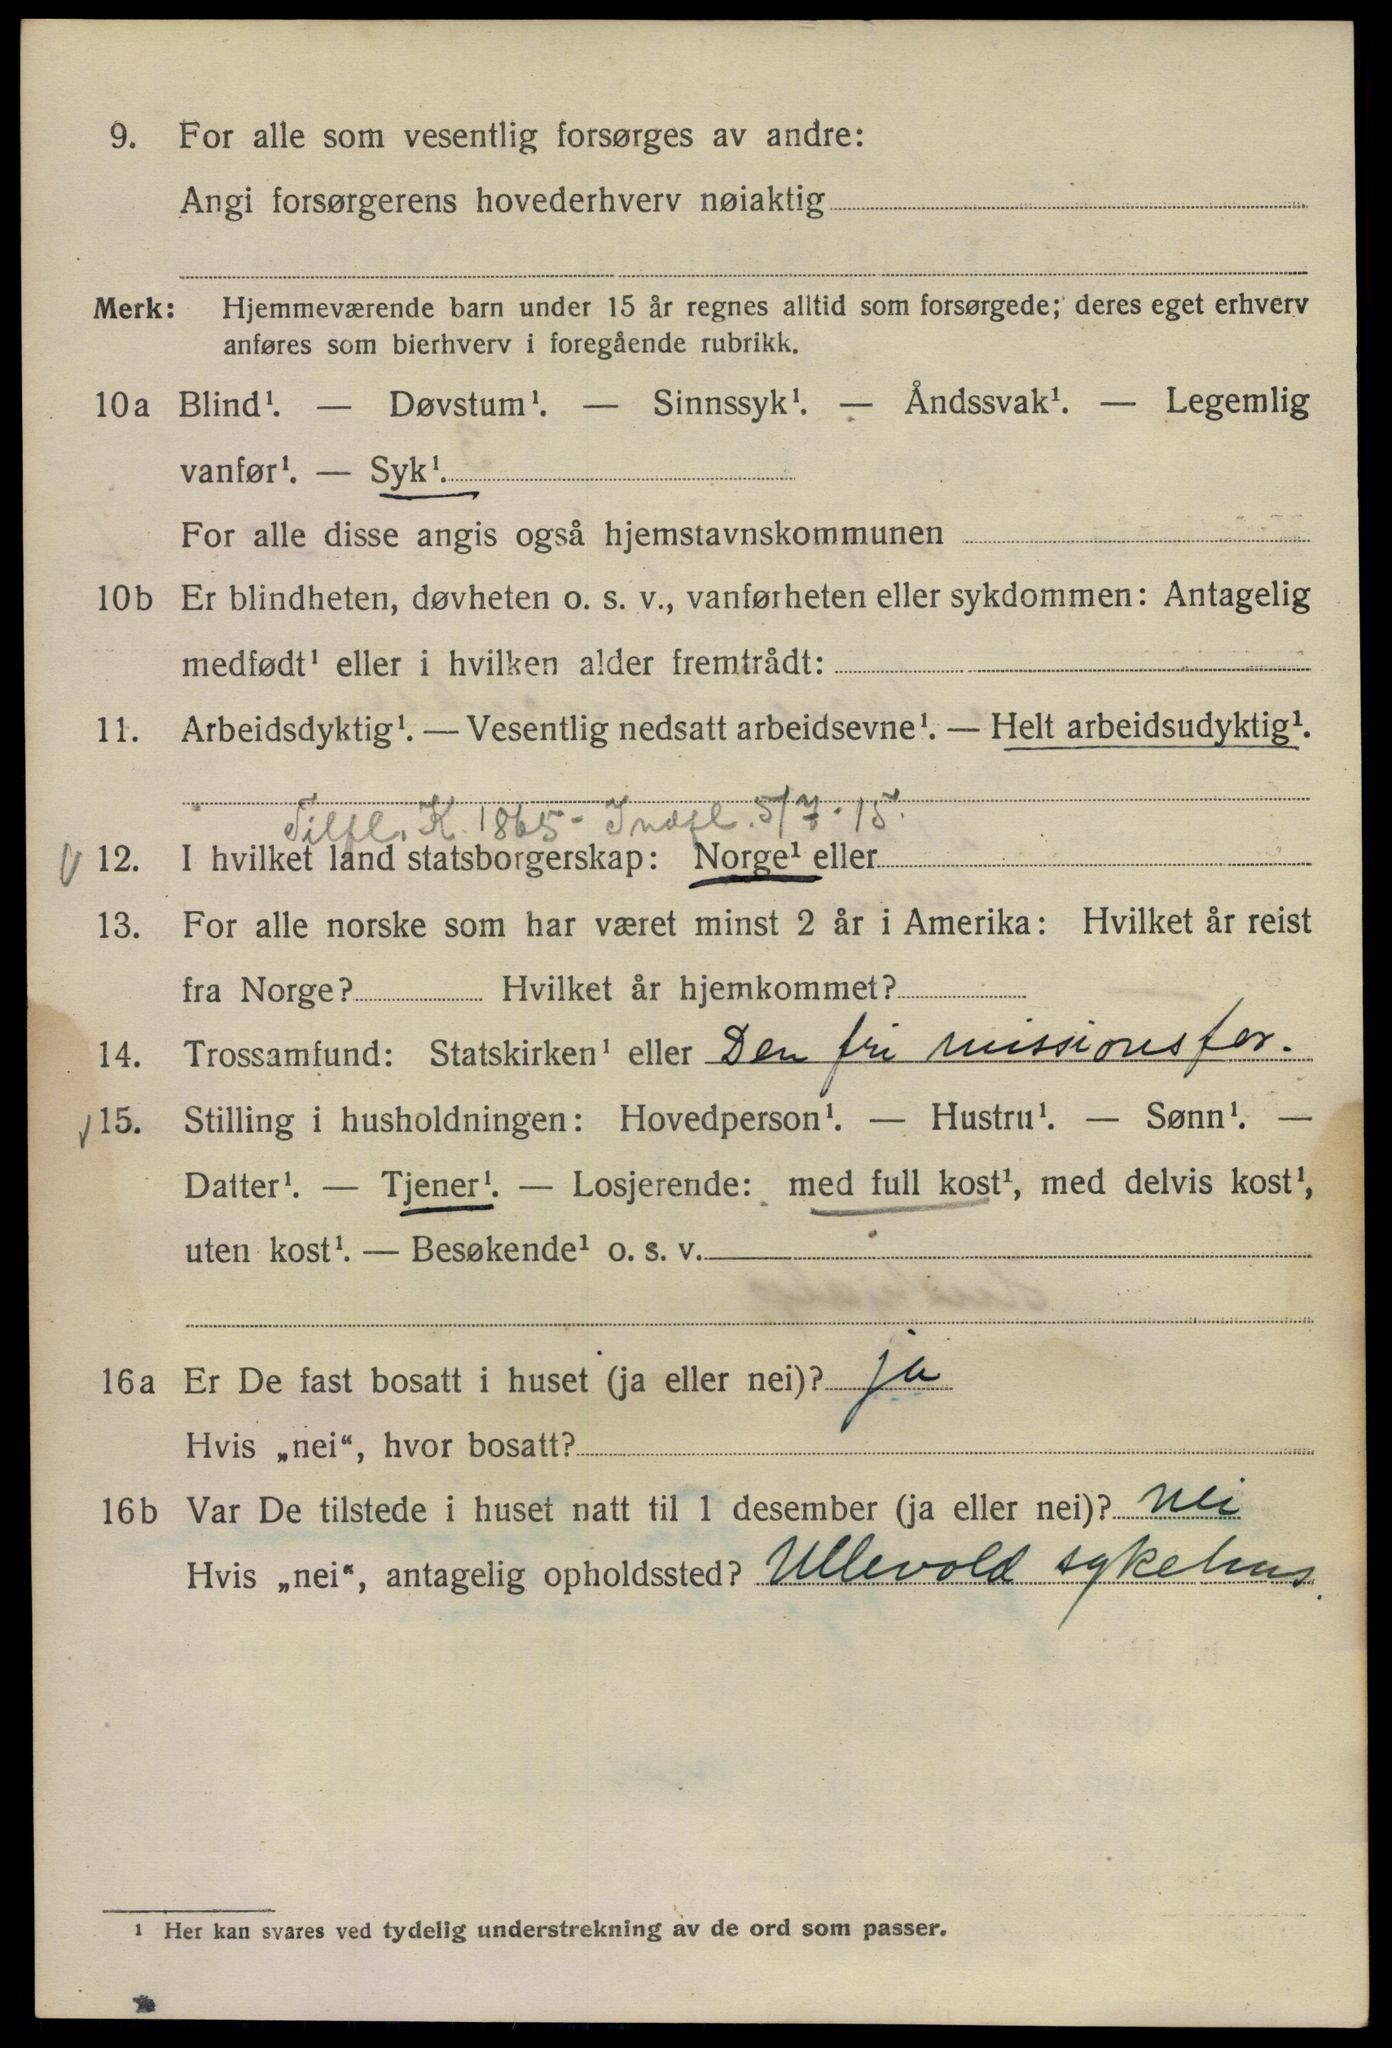 9. For alle som vesentlig forsørges av andre:
Angi forsørgerens hovederhverv nøiaktig
Merk: Hjemmeværende barn under 15 år regnes alltid som forsørgede; deres eget erhverv
anføres som bierhverv i foregående rubrikk.
10a Blind¹. — Døvstum¹. — Sinnssyk¹. — Åndssvak¹. — Legemlig
vanfør¹. — Syk¹.
For alle disse angis også hjemstavnskommunen
10b Er blindheten, døvheten o. s. v., vanførheten eller sykdommen: Antagelig
medfødt¹ eller i hvilken alder fremtrådt:
11. Arbeidsdyktig¹. — Vesentlig nedsatt arbeidsevne¹. — Helt arbeidsudyktig¹.
Tilfl. K. 1865 - Indfl. 5/7 - 15.
12. I hvilket land statsborgerskap: Norge¹ eller
13. For alle norske som har været minst 2 år i Amerika: Hvilket år reist
fra Norge? Hvilket år hjemkommet?
14. Trossamfund: Statskirken¹ eller Den fri missionsfor.
15. Stilling i husholdningen: Hovedperson¹. — Hustru¹. — Sønn¹. —
Datter¹. — Tjener¹. — Losjerende: med full kost¹, med delvis kost¹,
uten kost¹. — Besøkende¹ o. s. v.
16a Er De fast bosatt i huset (ja eller nei)? ja
Hvis „nei“, hvor bosatt?
16b Var De tilstede i huset natt til 1 desember (ja eller nei)? nei
Hvis „nei“, antagelig opholdssted? Ullevold sykehus.
¹ Her kan svares ved tydelig understrekning av de ord som passer.